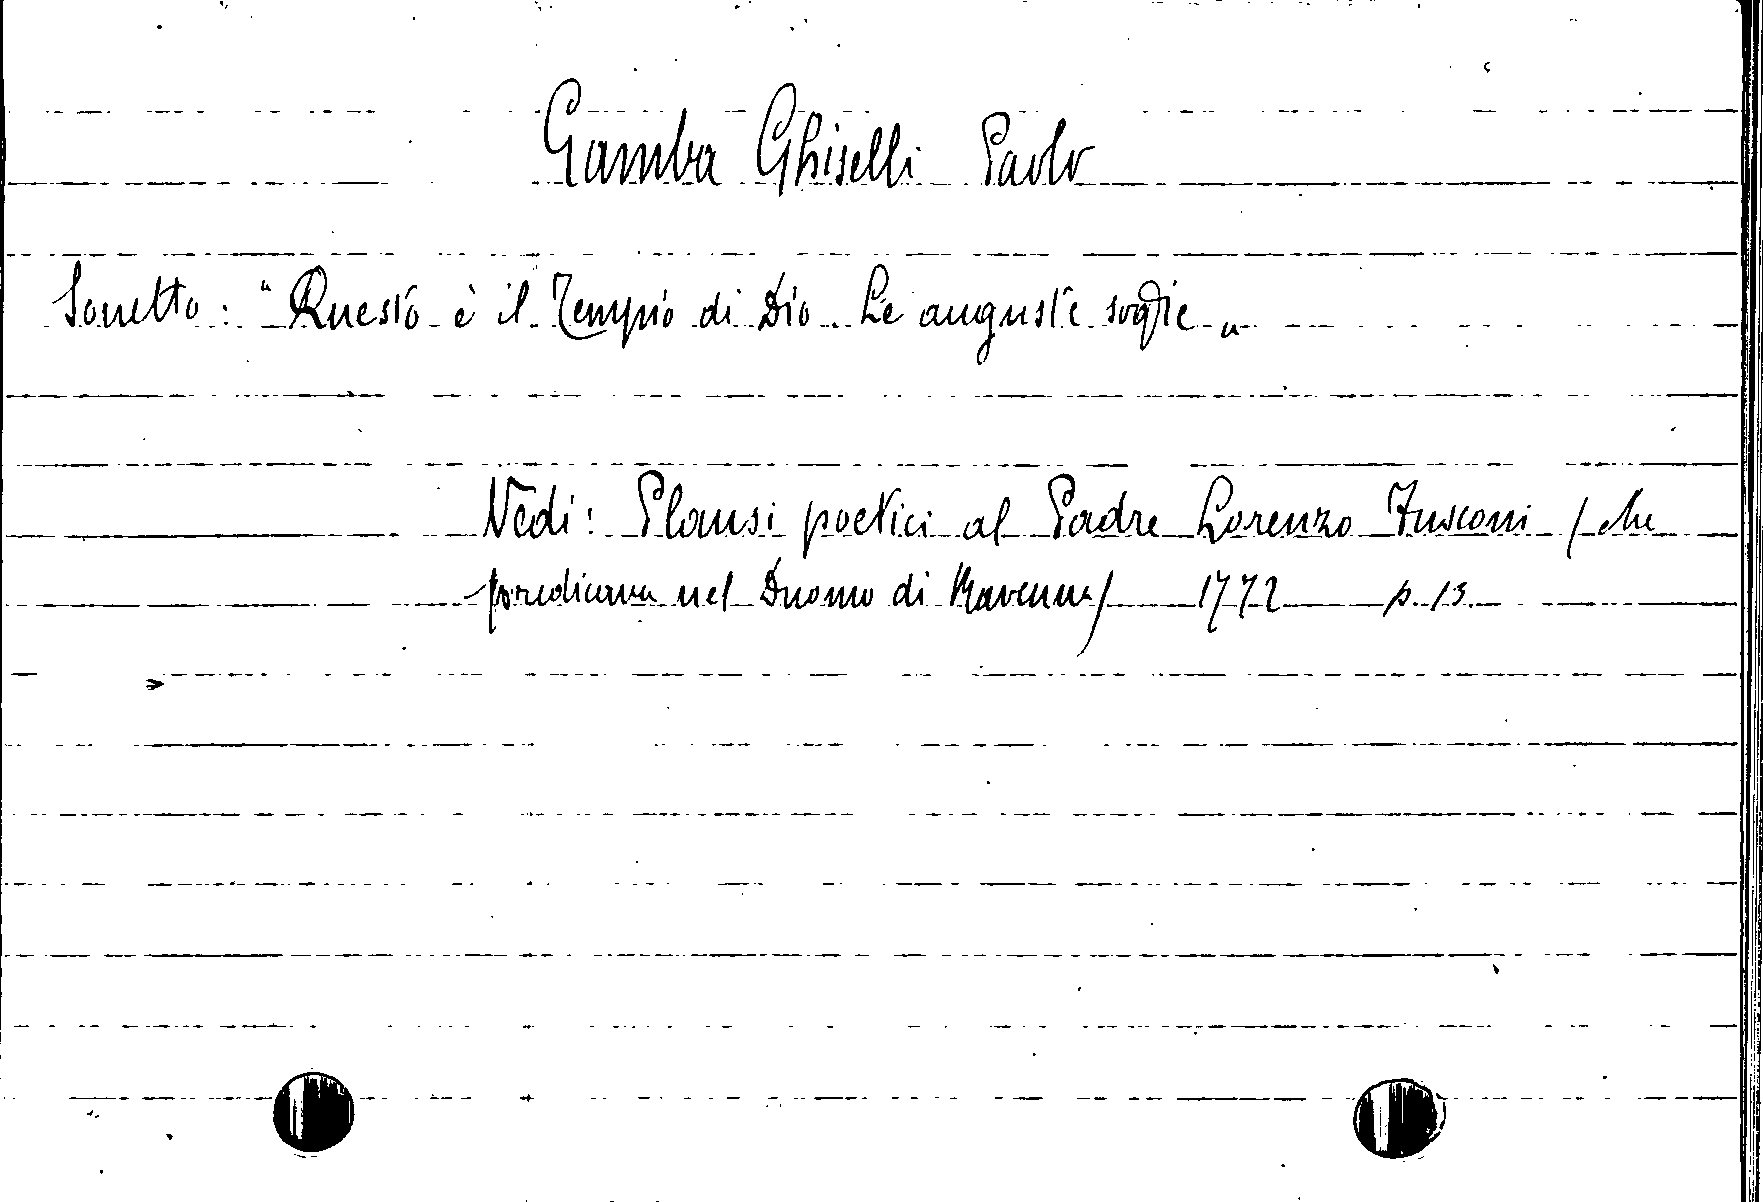 Gamba Ghiselli Paolo
Sonetto: "Questo è il Tempio di Dio. Le auguste soglie"
Vedi: Plausi poetici al Padre Lorenzo Fusconi (che
predicava nel Duomo di Ravenna) 1772 p. 13.